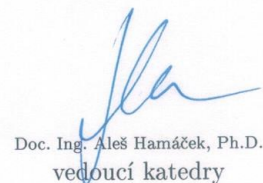 Doc. Ing. Aleš Hamáček, Ph.D.
vedoucí katedry